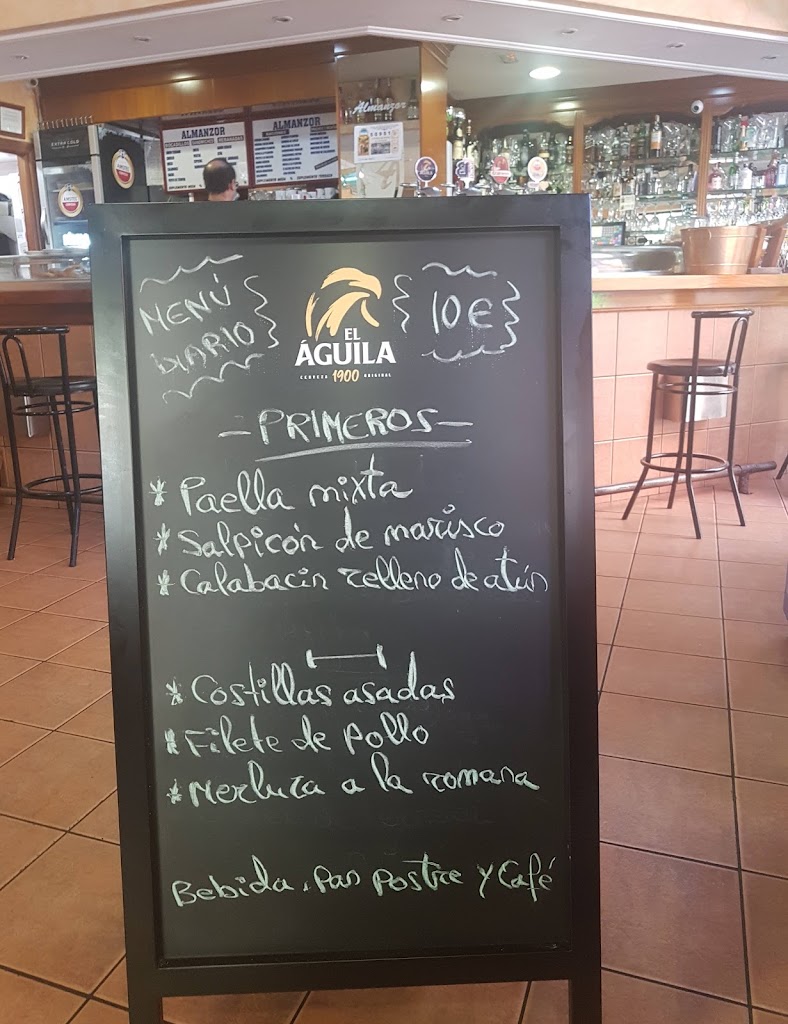 EXTRA COLD
ALMANZOR
ALMANZOR
Almanzor
MENÚ
DIARIO
EL
ÁGUILA
CERVEZA 1900 ORIGINAL
10€
-PRIMEROS-
* Paella mixta
* Salpicón de marisco
* Calabacin relleno de atún
* Costillas asadas
* Filete de pollo
* Merluza a la romana
Bebida, Pan Postre y Café